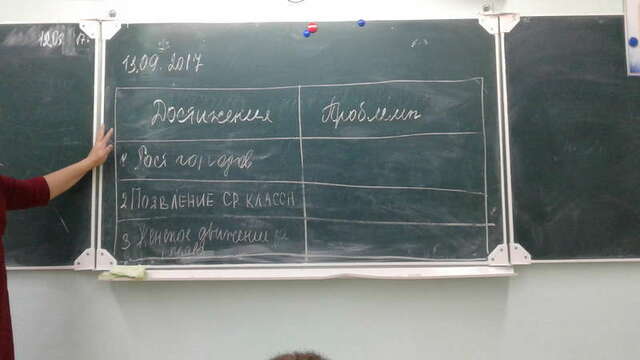 13.09.2017
Достижения
Проблемы
1) Рост городов
2) Появление ср класса
3) движение и